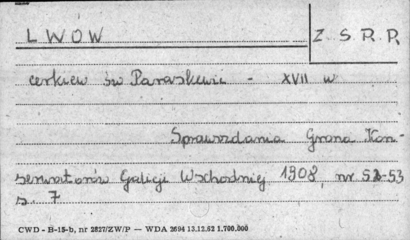 LWOW
Z. S. R. R.
cerkiew św Paraskewii - XVII w
Sprawozdania Grona Kon-
serwatorów Galicji Wschodniej 1908, nr 52-53
s. 7
CWD - B-15-b, nr 2827/ZW/P — WDA 2694 13.12.62 1.700.000